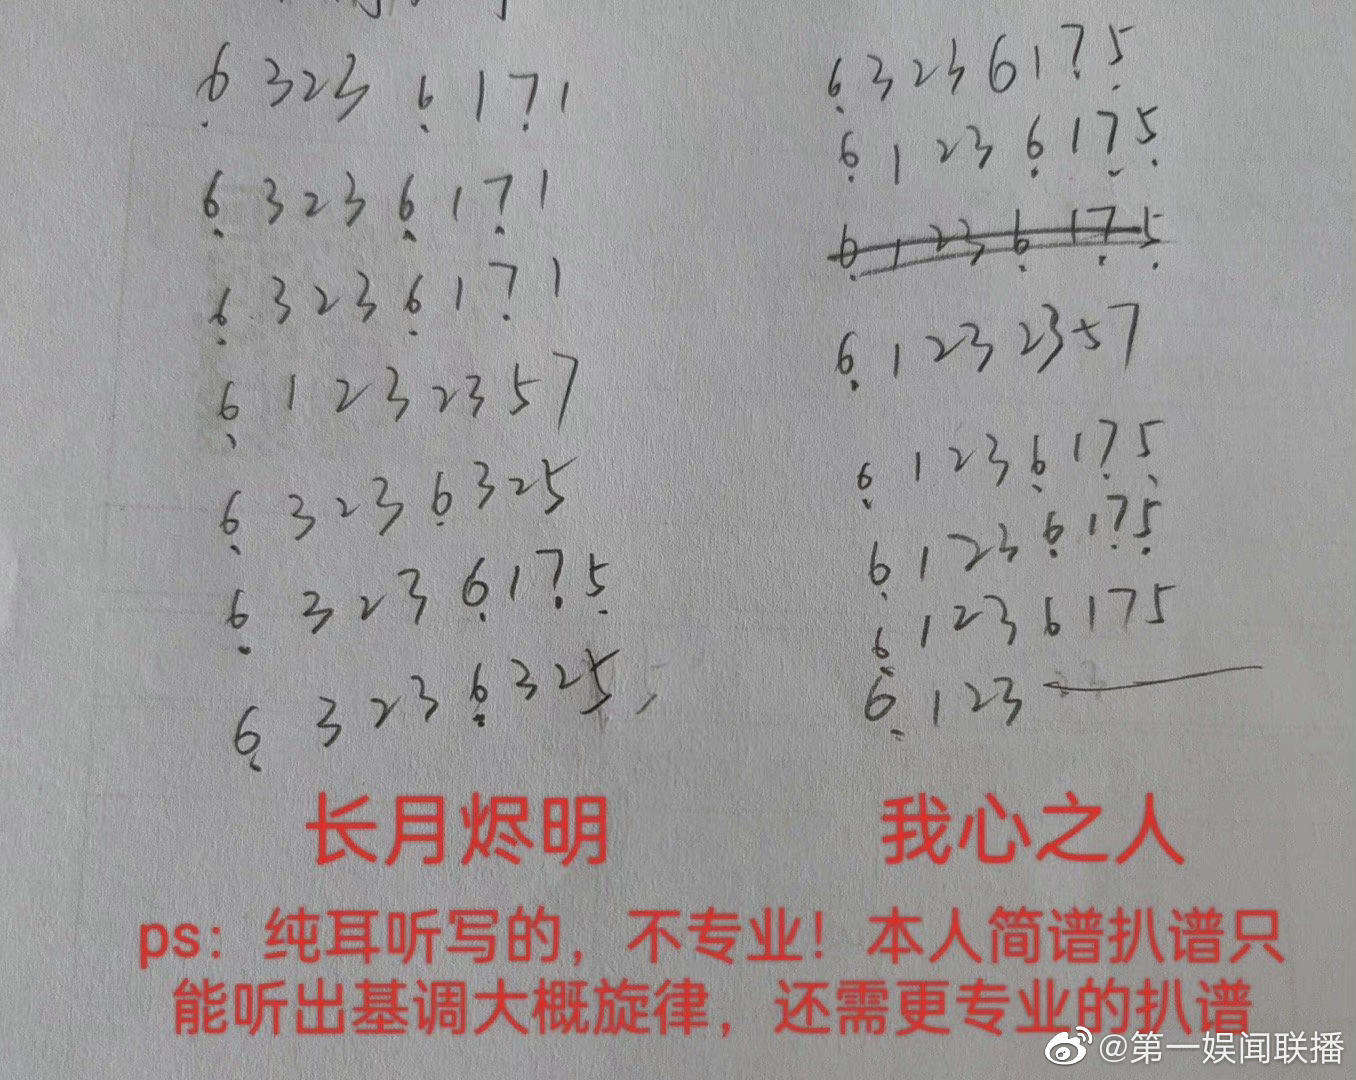 6 3 2 3 6 1 7 1
6 3 2 3 6 1 7 1
6 3 2 3 6 1 7 1
6 1 2 3 2 3 5 7
6 3 2 3 6 3 2 5
6 3 2 3 6 1 7 5
6 3 2 3 6 3 2 5
长月烬明
6 3 2 3 6 1 7 5
6 1 2 3 6 1 7 5
6 1 2 3 6 1 7 5
6 1 2 3 2 3 5 7
6 1 2 3 6 1 7 5
6 1 2 3 6 1 7 5
6 1 2 3 6 1 7 5
6 1 2 3
我心之人
ps：纯耳听写的，不专业！本人简谱扒谱只
能听出基调大概旋律，还需更专业的扒谱
@第一娱闻联播